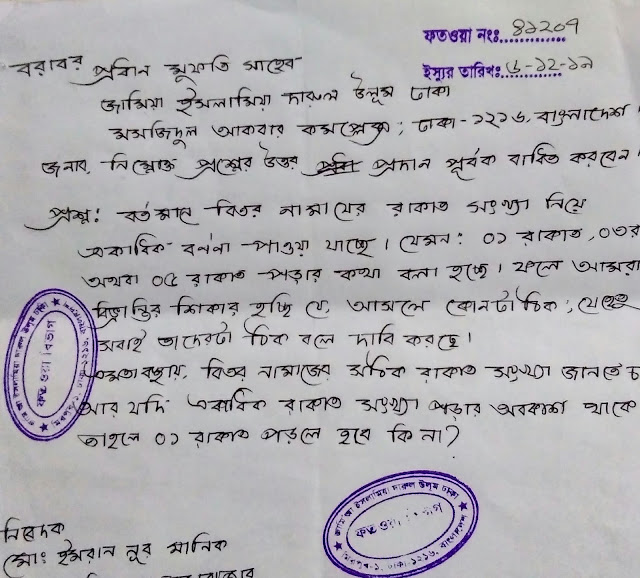 ফতওয়া নংঃ ৪১২০৭
ইস্যুর তারিখঃ ৬-১২-১৯
বরাবর প্রধান মুফতি সাহেব
জামিয়া ইসলামিয়া দারুল উলূম ঢাকা
মসজিদুল আকবার কমপ্লেক্স; ঢাকা-১২১৬, বাংলাদেশ।
জনাব, নিম্মোক্ত প্রশ্নের উত্তর প্রদান পূর্বক বাধিত করবেন।
প্রশ্ন: বর্তমানে বিতর নামাযের রাকাত সংখ্যা নিয়ে
একাধিক বর্ননা পাওয়া যাচ্ছে। যেমন: ০১ রাকাত, ০৩র
অথবা ০৫ রাকাত পড়ার কথা বলা হচ্ছে। ফলে আমরা
বিভ্রান্তির শিকার হচ্ছি যে, আসলে কোনটা ঠিক; যেহেতু
সবাই তাদেরটা ঠিক বলে দাবি করছে।
এমতাবস্থায়, বিতর নামাজের সঠিক রাকাত সংখ্যা জানতে চ
আর যদি একাধিক রাকাত সংখ্যা পড়ার অবকাশ থাকে
তাহলে ০১ রাকাত পড়লে হবে কি না?
ফতওয়া বিভাগ
জামিয়া ইসলামিয়া দারুল উলূম ঢাকা
ফতওয়া বিভাগ
মিরপুর-১, ঢাকা-১২১৬, বাংলাদেশ
নিবেদক
মোঃ ইমরান নুর মানিক